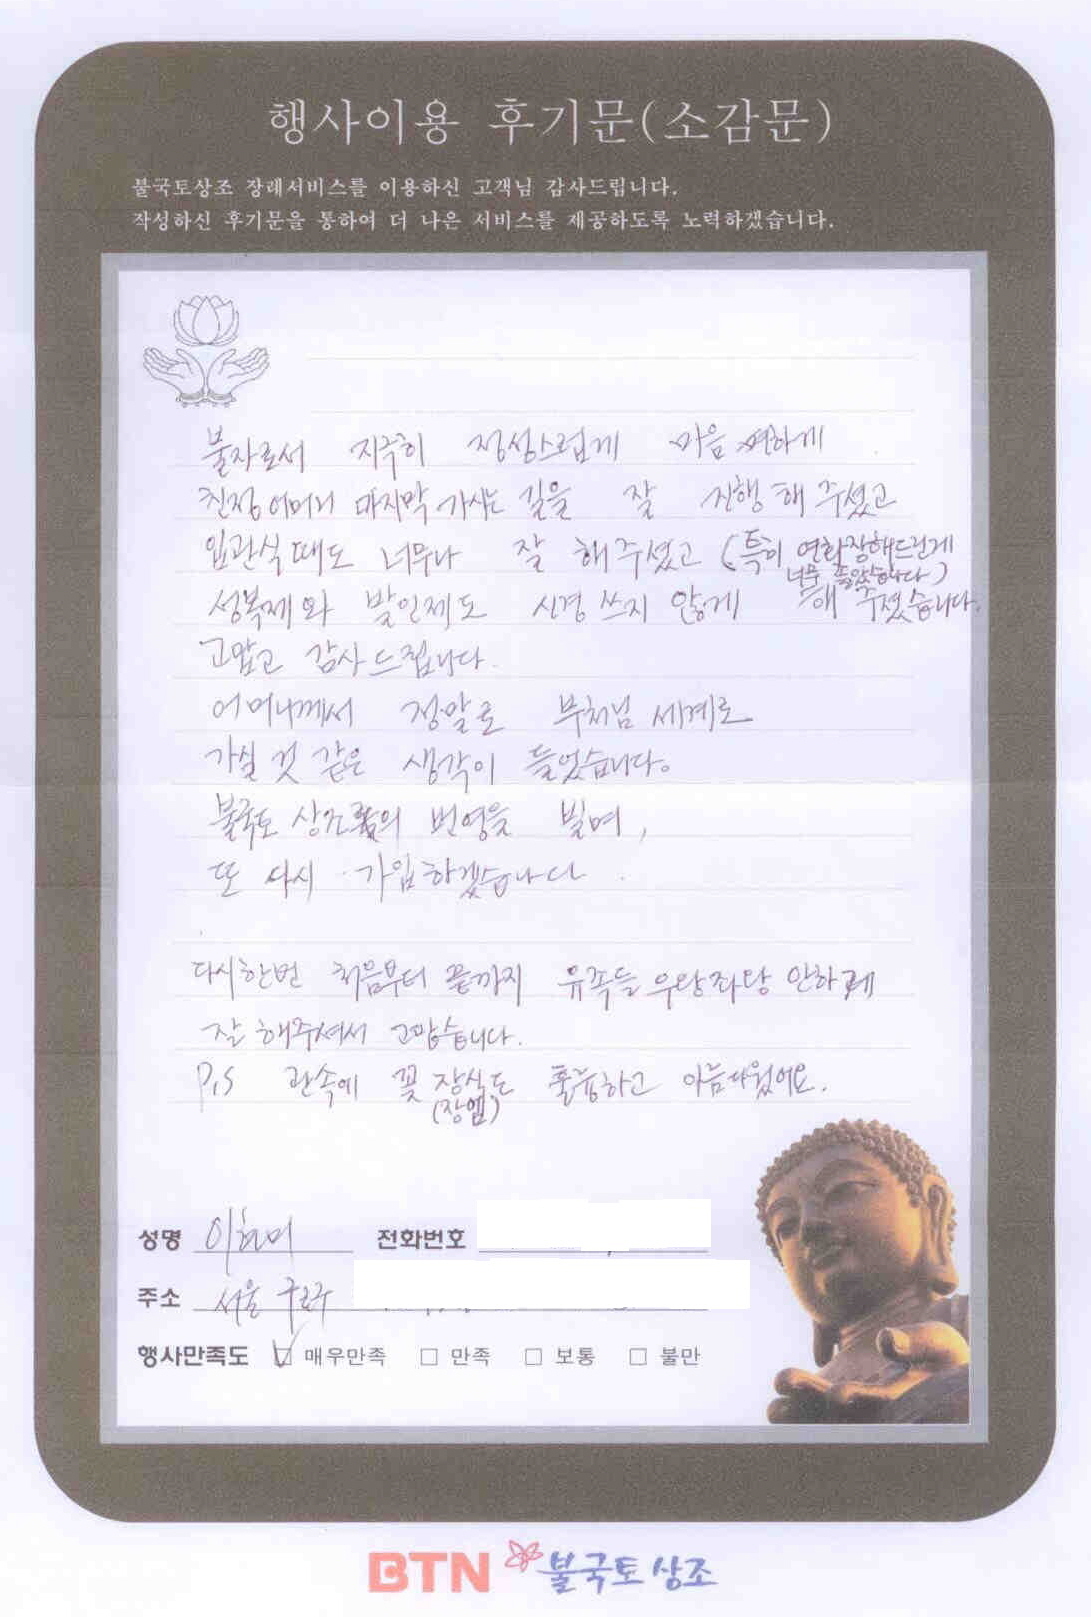 행사이용 후기문(소감문)
불국토상조 장례서비스를 이용하신 고객님 감사드립니다.
작성하신 후기문을 통하여 더 나은 서비스를 제공하도록 노력하겠습니다.
불자로서 지극히 정성스럽게 마음 편하게
친정어머니 마지막 가시는 길을 잘 진행 해 주셨고
입관식때도 너무나 잘 해주셨고 (특히 연화장해드린게
너무 좋았습니다)
성복제와 발인제도 신경 쓰지 않게 해 주셨습니다.
고맙고 감사드립니다.
어머니께서 정말로 부처님 세계로
가실 것 같은 생각이 들었습니다.
불국토 상조의 번영을 빌며,
또 다시 가입하겠습니다.
다시한번 처음부터 끝까지 유족들 우왕좌왕 안하게
잘 해주셔서 고맙습니다.
P.S 관속에 꽃 장식도 훌륭하고 아름다웠어요.
성명 전화번호
주소 서울 구로구
행사만족도 매우만족 만족 보통 불만
BTN 불국토 상조